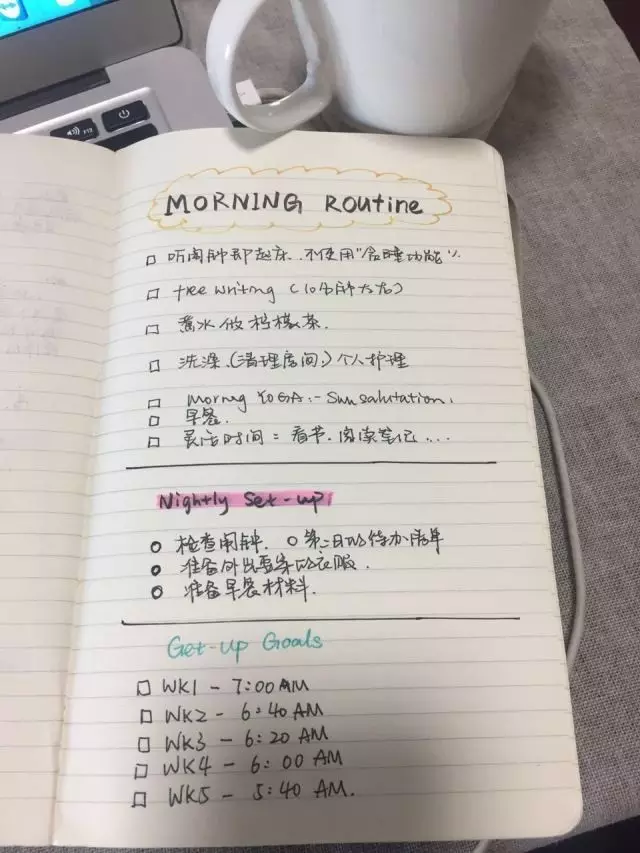 F12
MORNING Routine
听闹钟即起床..不使用"贪睡功能"
free writing (10分钟左右)
煮水做柠檬茶.
洗澡.(清理房间,)个人护理
Mornig YOGA:- Sunsalutation.
早餐.
灵活时间: 看书.阅读笔记....
Nightly Set-up
检查闹钟. 第二日的待办清单
准备外出要穿的衣服.
准备早餐材料.
Get-up Goals
WK1 - 7:00 AM
WK2 - 6:40 AM
WK3 - 6:20 AM
WK4 - 6:00 AM
WK5 - 5:40 AM.